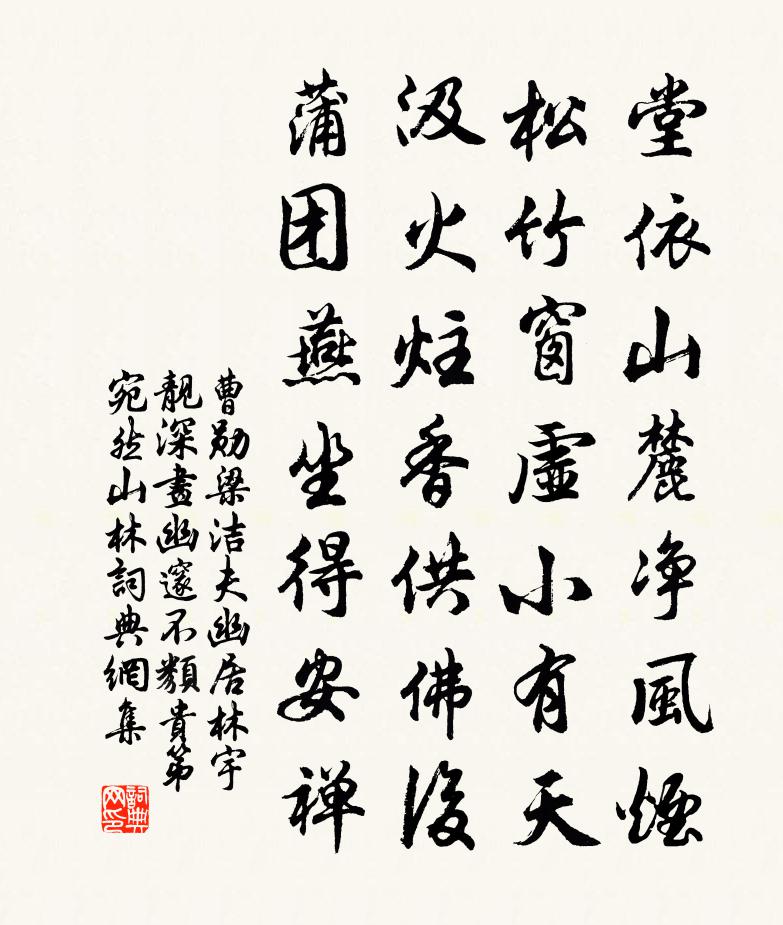 堂依山麓净風煙
松竹窗虛小有天
汲火炷香供佛後
蒲团燕坐得安禅
曹勛梁洁夫幽居林宇
靓深畫幽邃不類貴第
宛然山林詞典網集
詞典网印